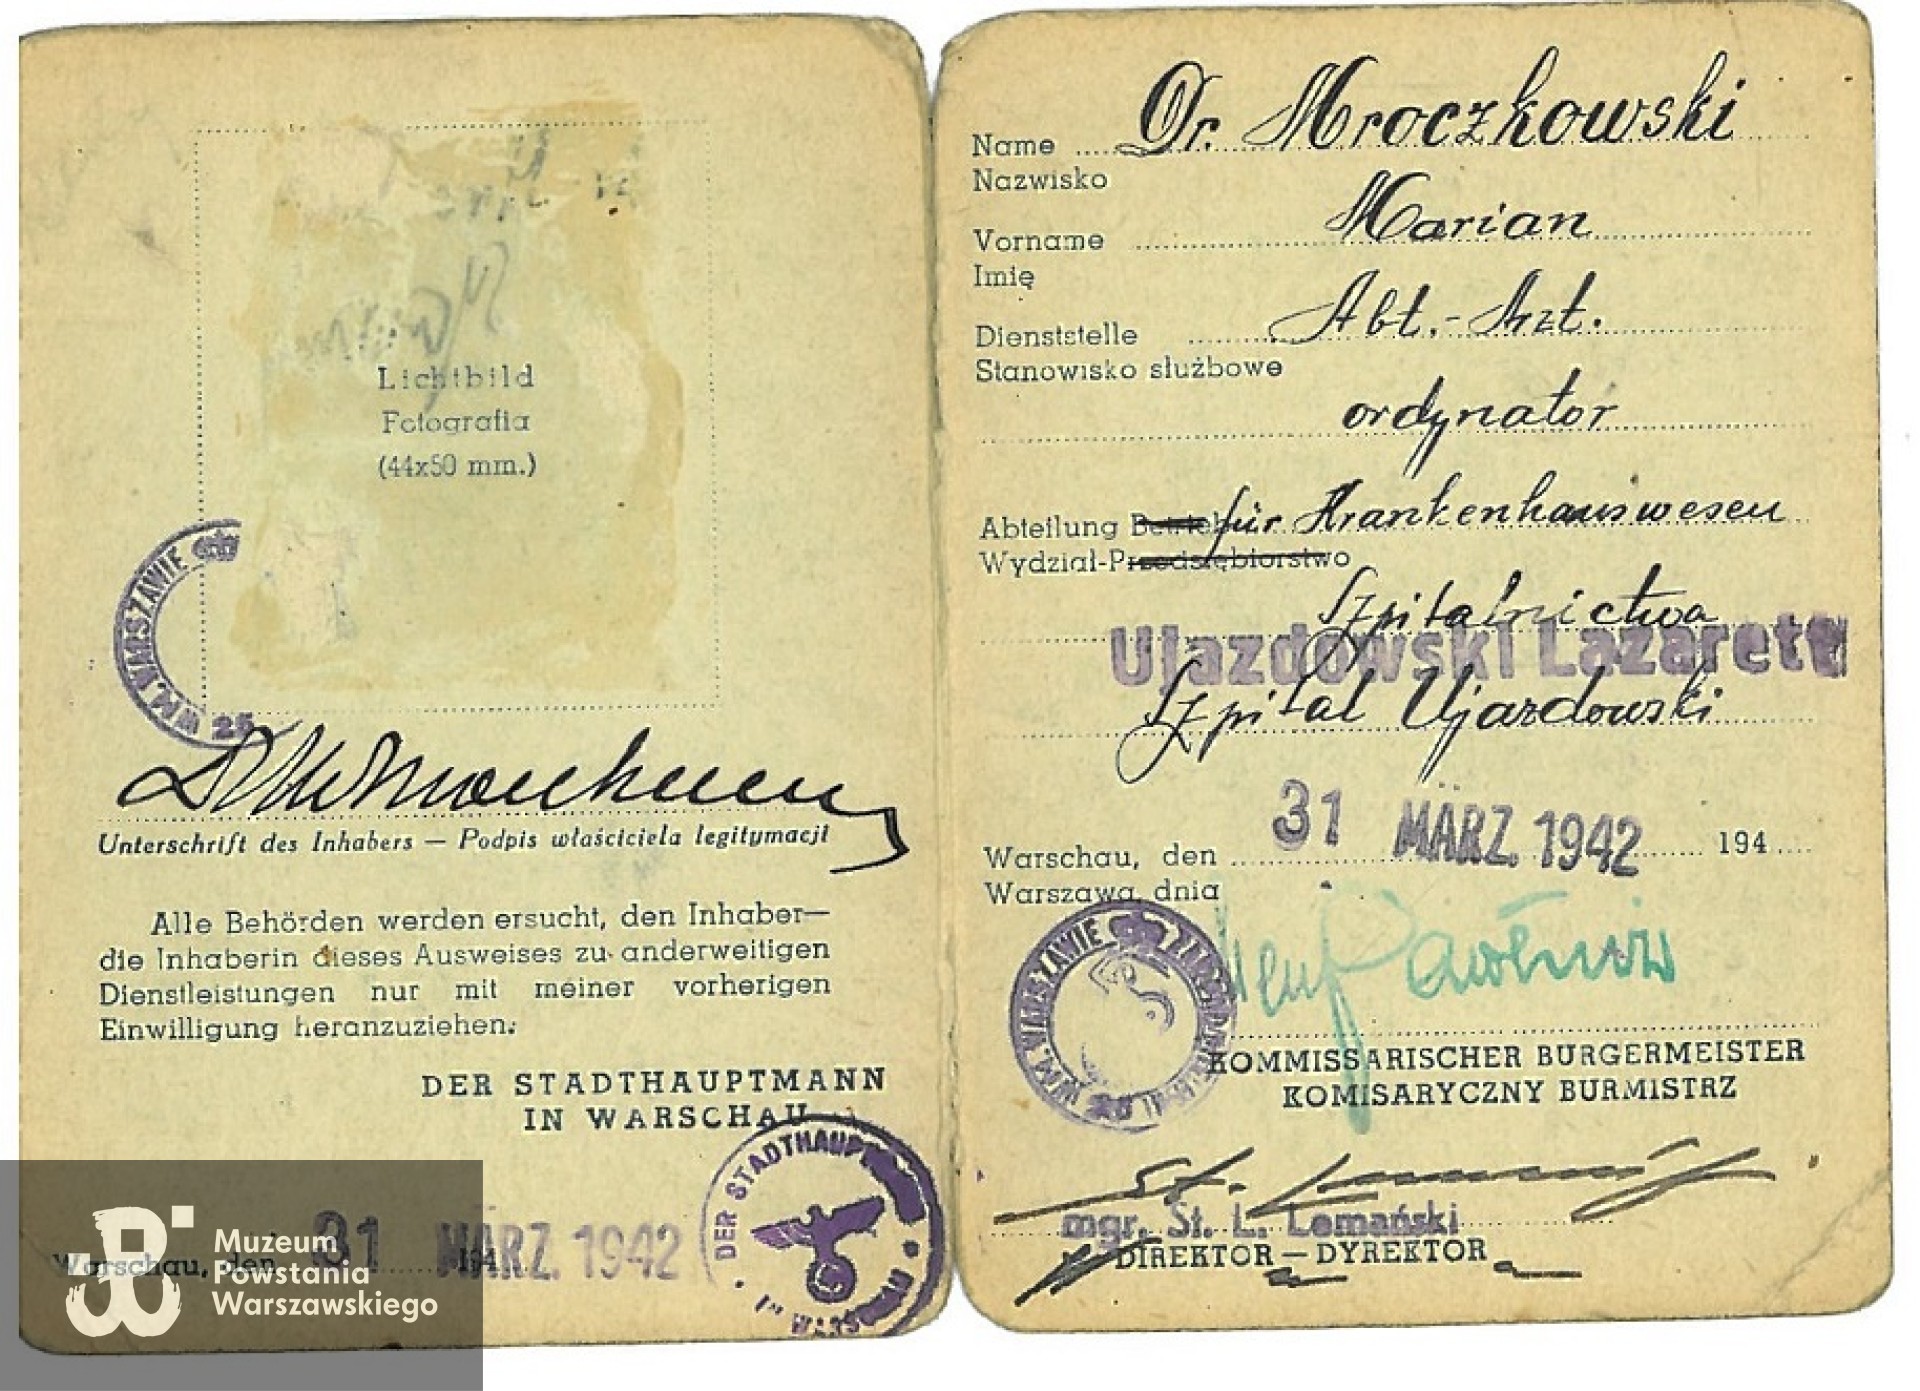 Lichtbild
Fotografia
(44x50 mm.)
W M. WARSZAWIE
25
Unterschrift des Inhabers — Podpis właściciela legitymacji
Alle Behörden werden ersucht, den Inhaber—
die Inhaberin dieses Ausweises zu anderweitigen
Dienstleistungen nur mit meiner vorherigen
Einwilligung heranzuziehen.
DER STADTHAUPTMANN
IN WARSCHAU
DER STADTHAUPT
Warschau, den 31 MÄRZ. 1942 194
Muzeum
Powstania
Warszawskiego
Name Dr. Mroczkowski
Nazwisko
Vorname Marian
Imię
Dienststelle Abt.-Arzt.
Stanowisko służbowe
ordynator
Abteilung Betrieb für Krankenhauswesen
Wydział-Przedsiębiorstwo
Szpitalnictwa
Ujazdowski Lazarett
Szpital Ujazdowski
Warschau, den 31 MÄRZ. 1942 194
Warszawa, dnia
W M. WARSZAWIE
25
KOMMISSARISCHER BÜRGERMEISTER
KOMISARYCZNY BURMISTRZ
mgr. St. L. Lemański
DIREKTOR — DYREKTOR